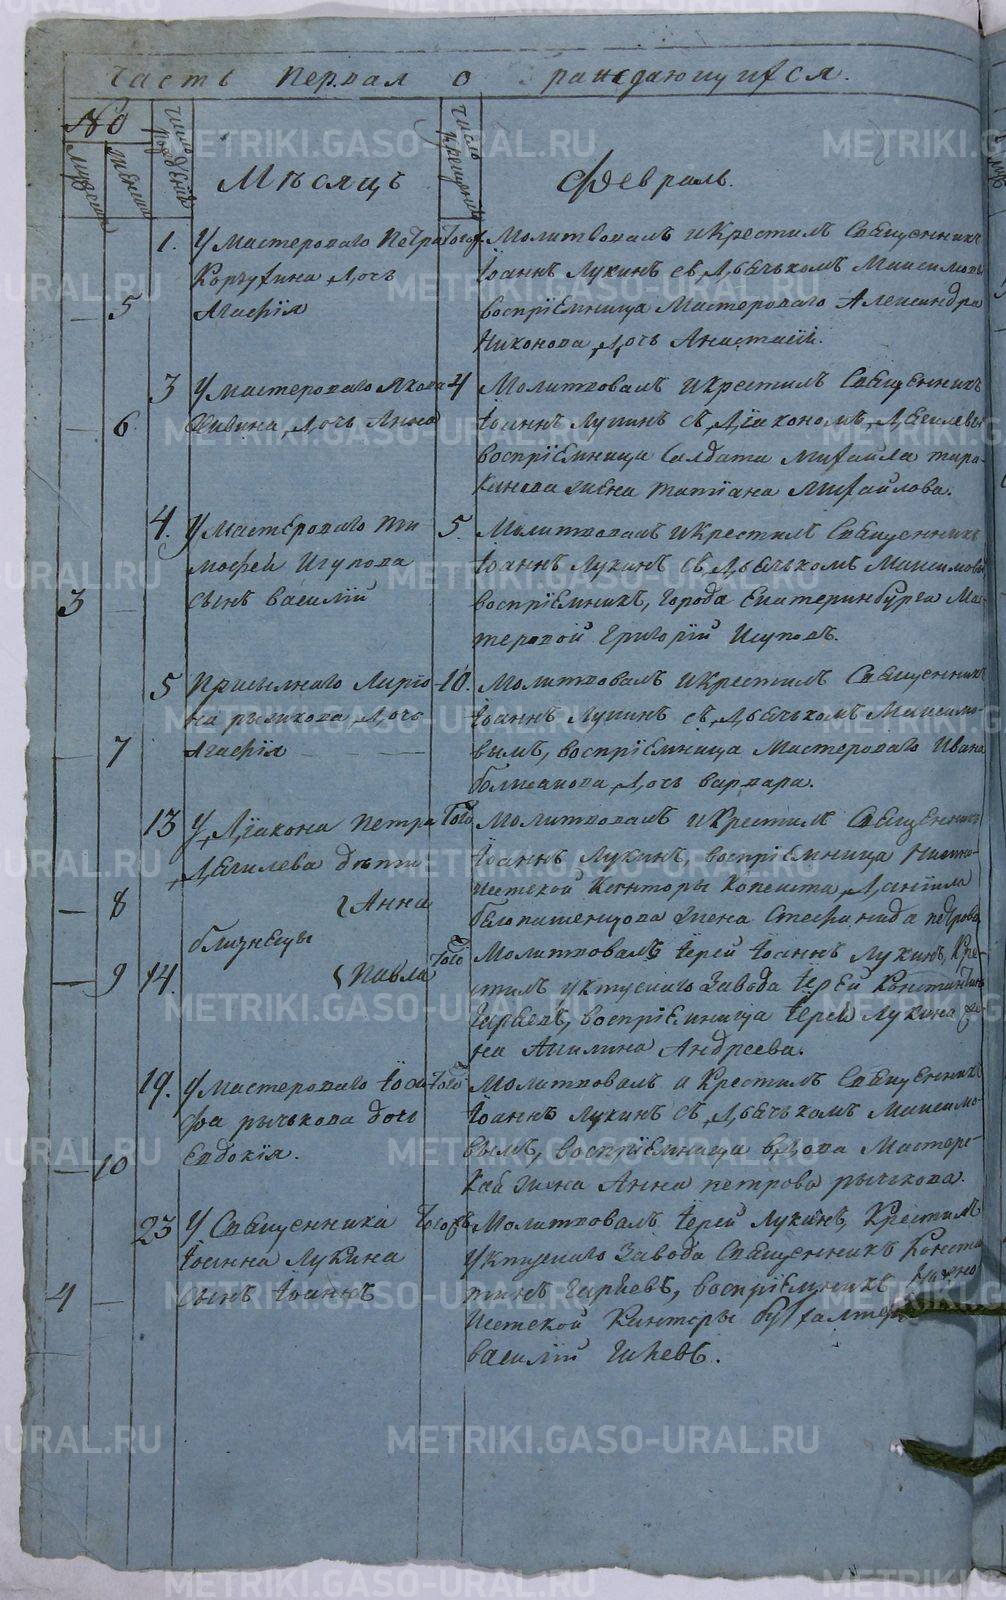 Часть первая о раждающихся.
№
мужеска
женска
Число рожденій
Мѣсяцъ
Число крещеній
Февраль.
1. У Мастероваго Петра
дочь
Агафія
5
Молитвовалъ и крестилъ Священникъ
Іоаннъ Лукинъ съ дьечькомъ Максимовымъ
воспріемница Мастероваго Александра
Никонова дочь Анастасія.
3 У мастероваго Якова 4
дочь Анна
6
Молитвовалъ и крестилъ Священникъ
Іоаннъ Лукинъ съ діакономъ Дегилевы
воспріемница Солдата Михайла тара-
канова жена татіана Михайлова.
4. У мастероваго ти 5.
мофей Исупова
сынъ василій
3
Молитвовалъ и крестилъ Священникъ
Іоаннъ Лукинъ съ дьечькомъ Максимовы
воспріемникъ, города Екатеринбурга Мас-
теровой Григорій Исуповъ.
5 Присыльнаго 10.
на рычкова дочь
Агафія
7
Молитвовалъ и крестилъ Священникъ
Іоаннъ Лукинъ съ дьечькомъ Максимо-
вымъ, воспріемница Мастероваго Ивана
дочь варвара.
13 У діакона петра Того
Дегилева дѣти
Анна
8
близнецы
Молитвовалъ и крестилъ Священникъ
Іоаннъ Лукинъ, воспріемница Нижно-
Исетской Конторы Копеиста Даніила
Белопашенцова жена Стефанида петрова
9 14. Павла Того
Молитвовалъ Іерей Іоаннъ Лукинъ, Кре-
стилъ уктускаго Завода Іерей Константинъ
воспріемница Іерея Лукина же
на Акилина Андреева.
19. У мастероваго Іоси Того
фа рычькова дочь
Евдокія.
10
Молитвовалъ и Крестилъ Священникъ
Іоаннъ Лукинъ съ дьечькомъ Максимо-
вымъ, воспріемница вдова Мастерс-
кая жена Анна петрова рычькова.
23 У Священника Тогожъ
Іоанна Лукина
сынъ Іоаннъ
4
Молитвовалъ Іерей Лукинъ, Крестилъ
Уктускаго Завода Священникъ Конста
тинъ воспріемникъ Нижно
Исетской Канторы бухгалтеръ
василій
METRIKI.GASO-URAL.RU